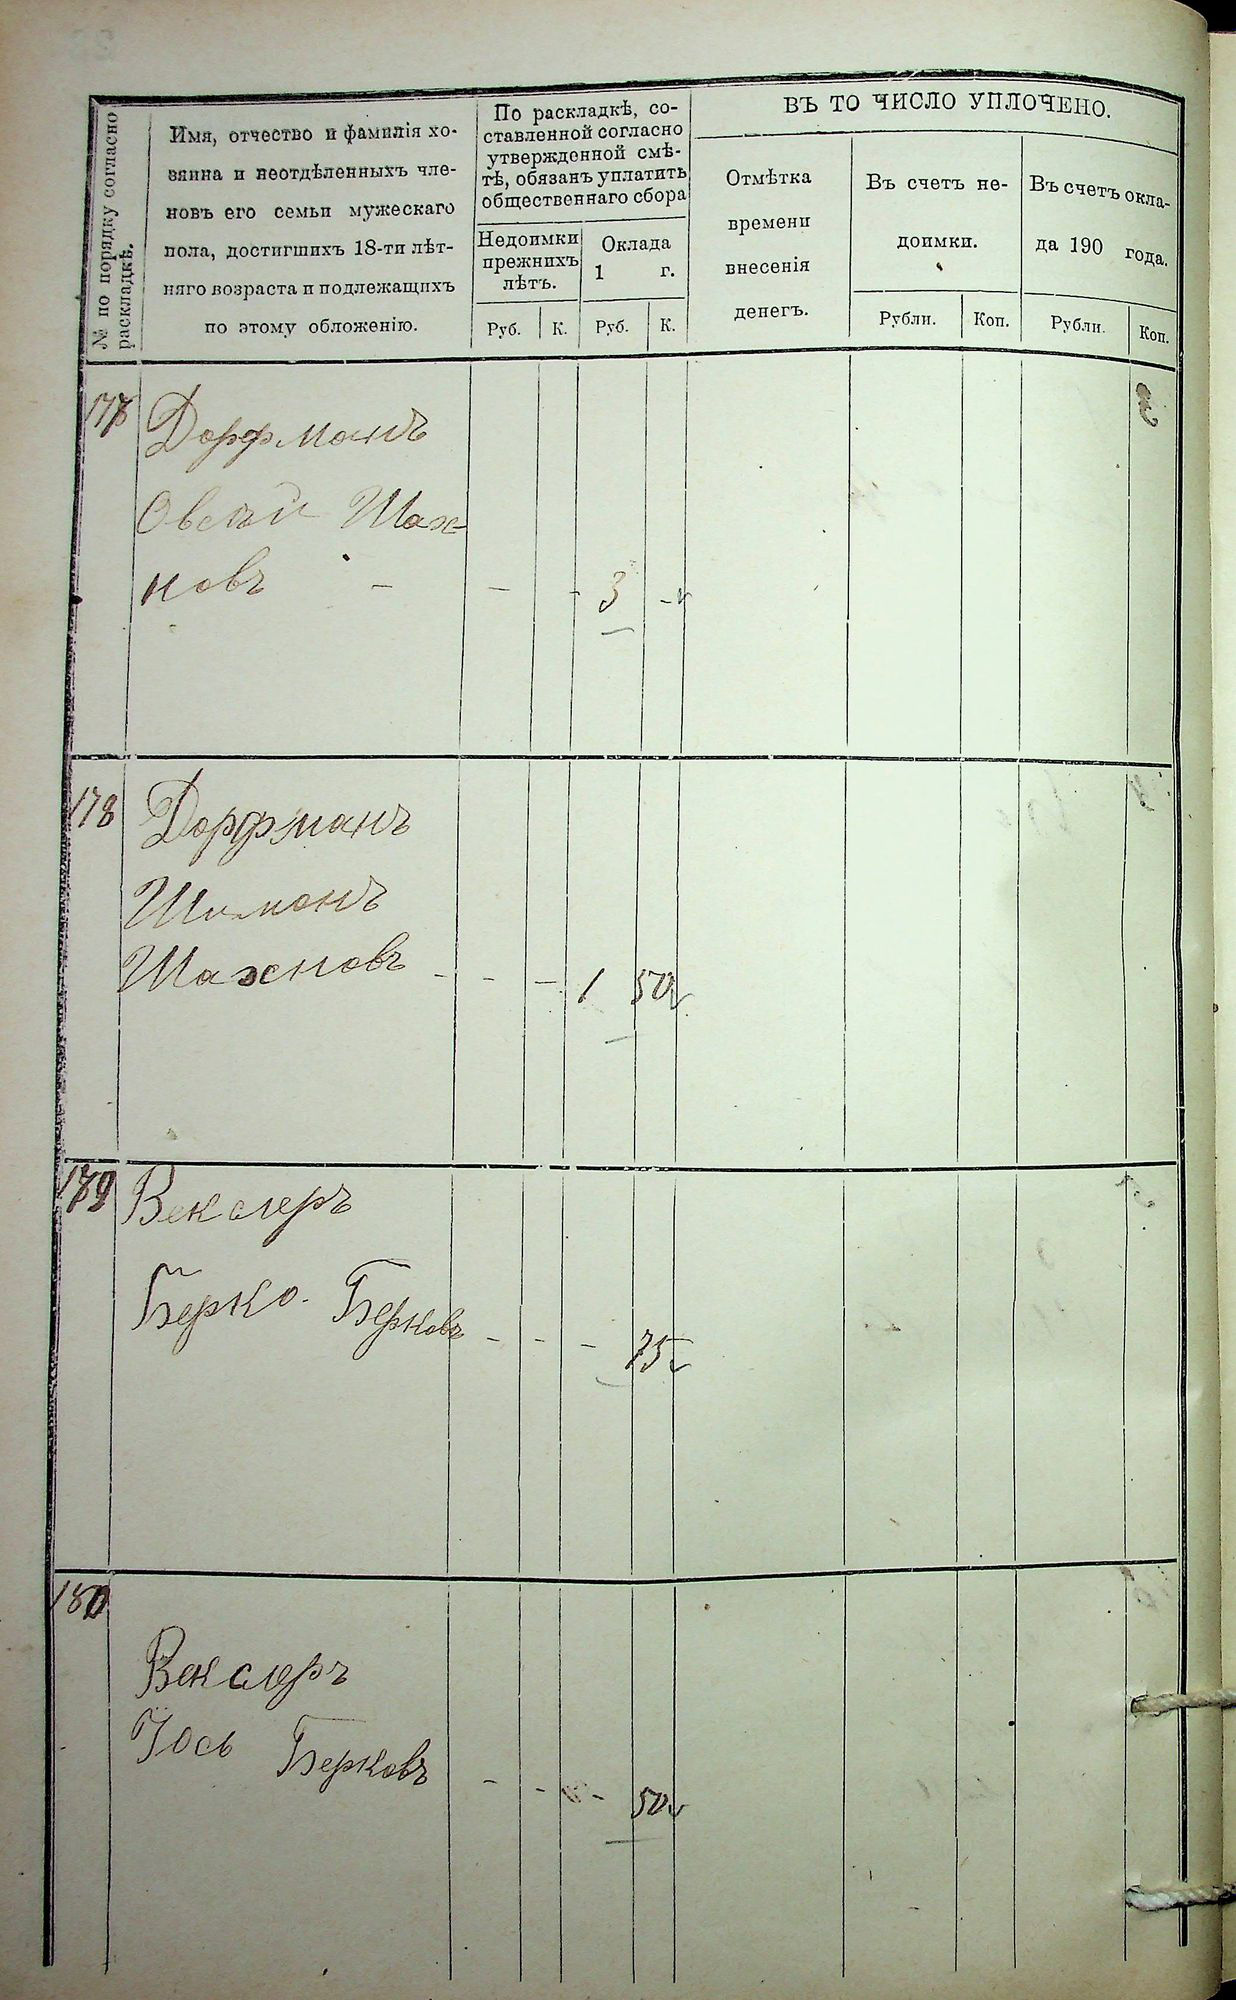 № по порядку согласно
раскладкѣ.
Имя, отчество и фамилія хо-
зяина и неотдѣленныхъ чле-
новъ его семьи мужескаго
пола, достигшихъ 18-ти лѣт-
няго возраста и подлежащихъ
по этому обложенію.
По раскладкѣ, со-
ставленной согласно
утвержденной смѣ-
тѣ, обязанъ уплатить
общественнаго сбора
Недоимки
прежнихъ
лѣтъ.
Руб. К.
Оклада
1 г.
Руб. К.
ВЪ ТО ЧИСЛО УПЛОЧЕНО.
Отмѣтка
времени
внесенія
денегъ.
Въ счетъ не-
доимки.
Рубли. Коп.
Въ счетъ окла-
да 190 года.
Рубли. Коп.
177 Дорфманъ
Овсѣй Шах-
новъ - - - 3 -
178 Дорфманъ
Шимонъ
Шахновъ - - - 1 50
179 Векслеръ
Берко Берковъ - - - 75
180
Векслеръ
Іось Берковъ - - - 50